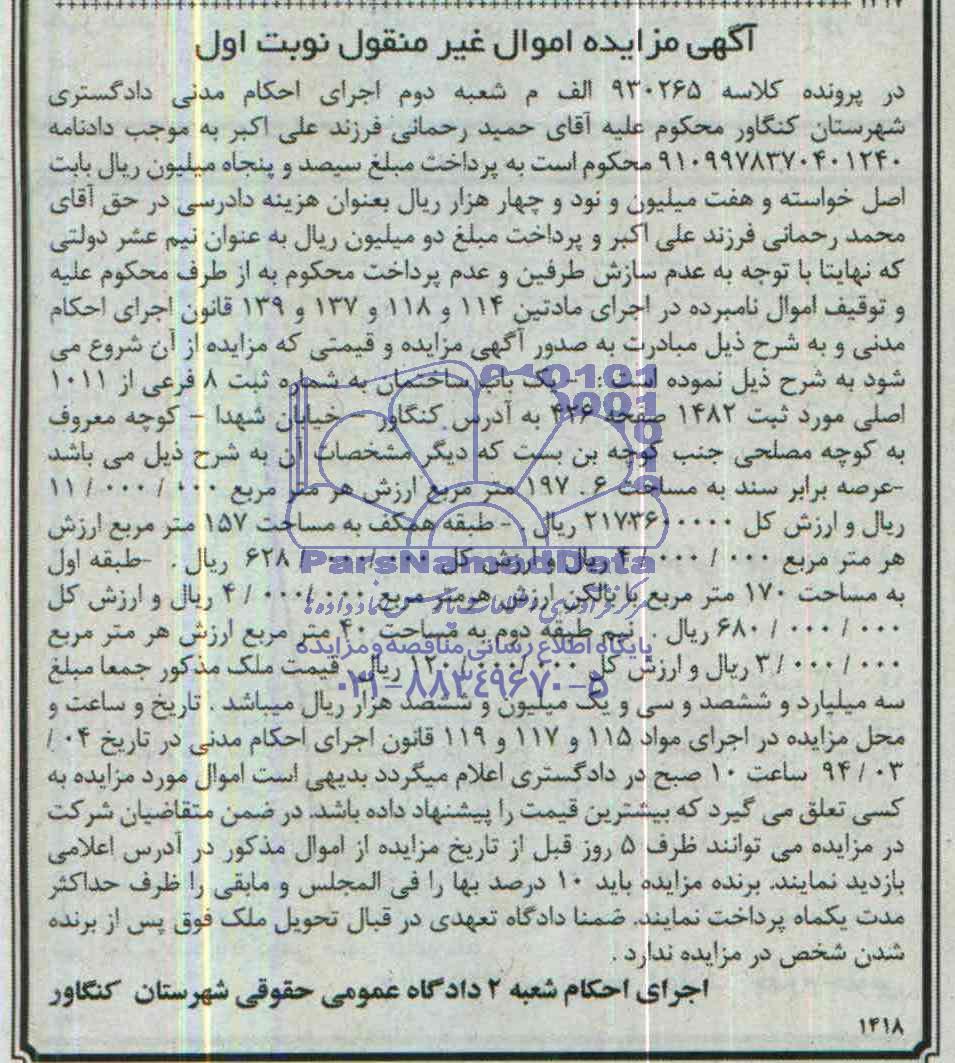 ۱۴۱۷
آگهی مزایده اموال غیر منقول نوبت اول
در پرونده کلاسه ۹۳۰۲۶۵ الف م شعبه دوم اجرای احکام مدنی دادگستری
شهرستان کنگاور محکوم علیه آقای حمید رحمانی فرزند علی اکبر به موجب دادنامه
۹۱۰۹۹۷۸۳۷۰۴۰۱۲۴۰ محکوم است به پرداخت مبلغ سیصد و پنجاه میلیون ریال بابت
اصل خواسته و هفت میلیون و نود و چهار هزار ریال بعنوان هزینه دادرسی در حق آقای
محمد رحمانی فرزند علی اکبر و پرداخت مبلغ دو میلیون ریال به عنوان نیم عشر دولتی
که نهایتا با توجه به عدم سازش طرفین و عدم پرداخت محکوم به از طرف محکوم علیه
و توقیف اموال نامبرده در اجرای مادتین ۱۱۴ و ۱۱۸ و ۱۳۷ و ۱۳۹ قانون اجرای احکام
مدنی و به شرح ذیل مبادرت به صدور آگهی مزایده و قیمتی که مزایده از آن شروع می
شود به شرح ذیل نموده است : - یک باب ساختمان به شماره ثبت ۸ فرعی از ۱۰۱۱
اصلی مورد ثبت ۱۴۸۲ صفحه ۴۲۶ به آدرس کنگاور - خیابان شهدا – کوچه معروف
به کوچه مصلحی جنب کوچه بن بست که دیگر مشخصات آن به شرح ذیل می باشد
-عرصه برابر سند به مساحت ۶ . ۱۹۷ متر مربع ارزش هر متر مربع ۰۰۰ / ۰۰۰ / ۱۱
ریال و ارزش کل ۲۱۷۳۶۰۰۰۰۰ ریال . - طبقه همکف به مساحت ۱۵۷ متر مربع ارزش
هر متر مربع ۰۰۰ / ۰۰۰ / ۴ ریال و ارزش کل ۰۰۰ / ۰۰۰ / ۶۲۸ ریال . -طبقه اول
به مساحت ۱۷۰ متر مربع با بالکن ارزش هر متر مربع ۰۰۰ / ۰۰۰ / ۴ ریال و ارزش کل
۰۰۰ / ۰۰۰ / ۶۸۰ ریال . نیم طبقه دوم به مساحت ۴۰ متر مربع ارزش هر متر مربع
۰۰۰ / ۰۰۰ / ۳ ریال و ارزش کل ۰۰۰ / ۰۰۰ / ۱۲۰ ریال . قیمت ملک مذکور جمعا مبلغ
سه میلیارد و ششصد و سی و یک میلیون و ششصد هزار ریال میباشد . تاریخ و ساعت و
محل مزایده در اجرای مواد ۱۱۵ و ۱۱۷ و ۱۱۹ قانون اجرای احکام مدنی در تاریخ ۰۴ /
۰۳ / ۹۴ ساعت ۱۰ صبح در دادگستری اعلام میگردد بدیهی است اموال مورد مزایده به
کسی تعلق می گیرد که بیشترین قیمت را پیشنهاد داده باشد. در ضمن متقاضیان شرکت
در مزایده می توانند ظرف ۵ روز قبل از تاریخ مزایده از اموال مذکور در آدرس اعلامی
بازدید نمایند. برنده مزایده باید ۱۰ درصد بها را فی المجلس و مابقی را ظرف حداکثر
مدت یکماه پرداخت نمایند. ضمنا دادگاه تعهدی در قبال تحویل ملک فوق پس از برنده
شدن شخص در مزایده ندارد .
اجرای احکام شعبه ۲ دادگاه عمومی حقوقی شهرستان کنگاور
۱۴۱۸
ParsNamadData
پایگاه اطلاع رسانی مناقصه و مزایده
۰۲۱-۸۸۳۴۹۶۷۰-۵